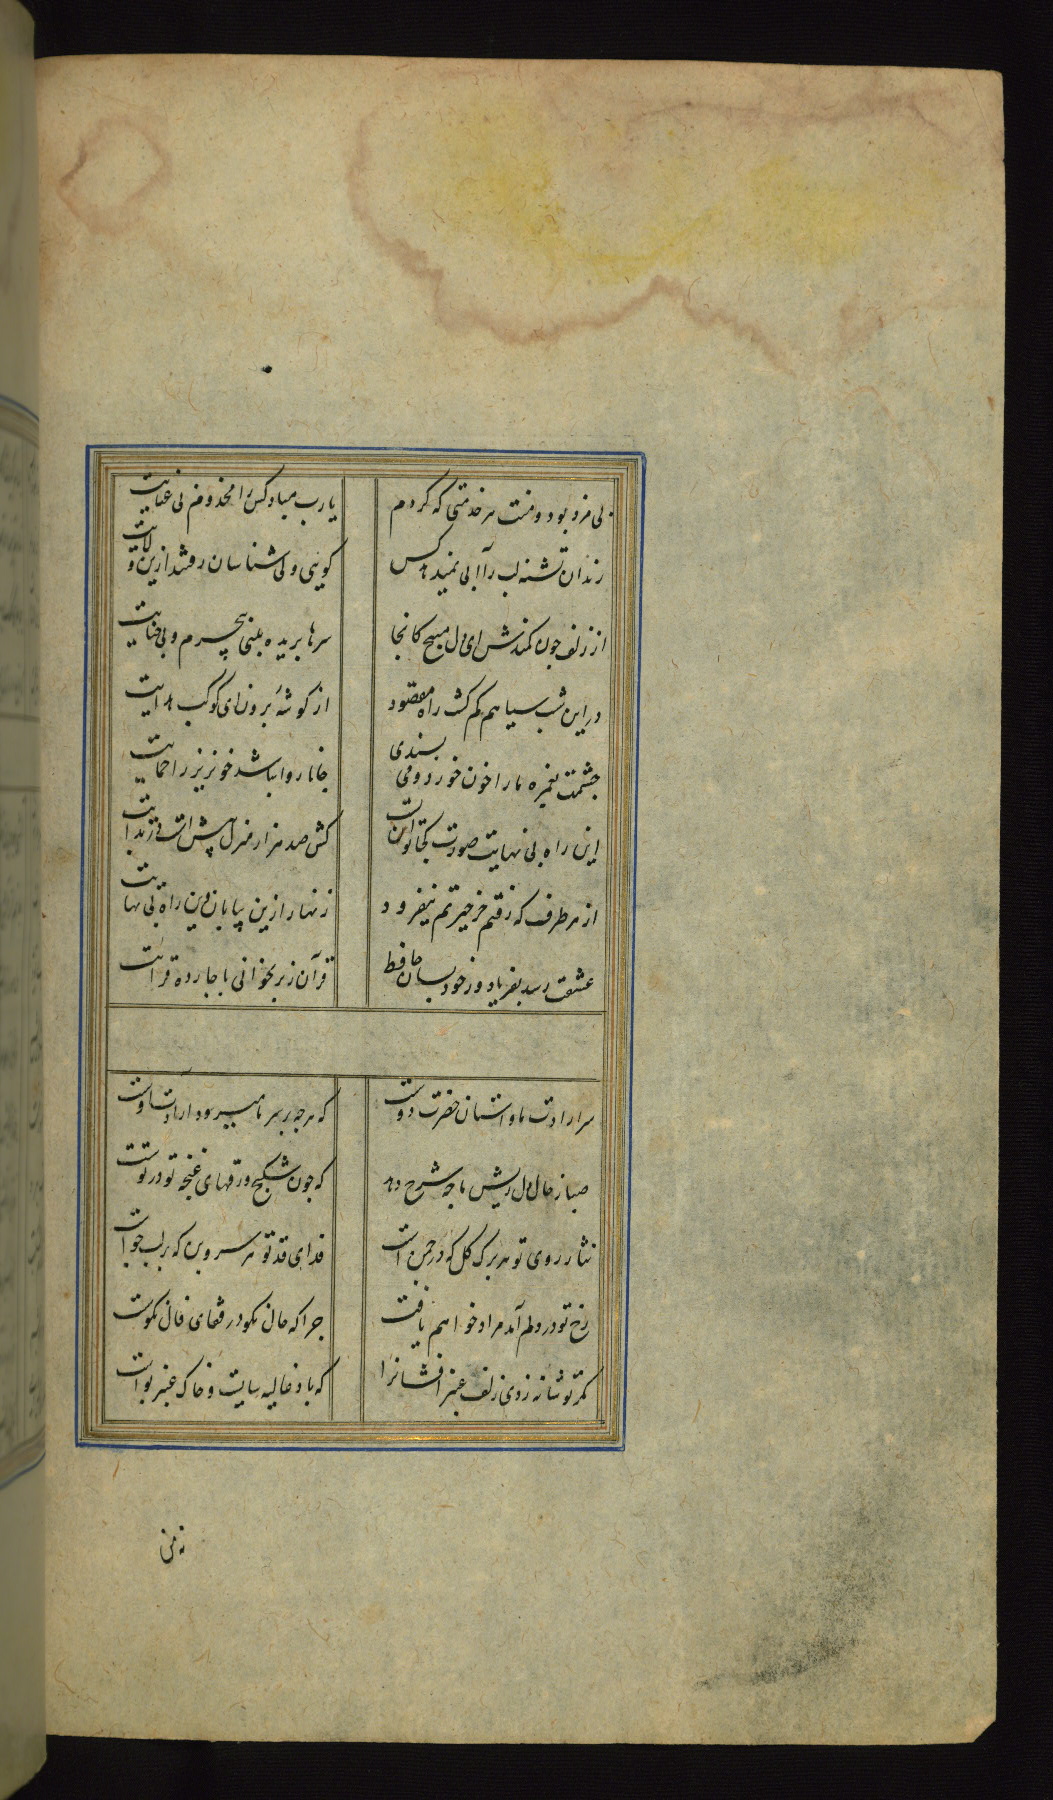 بی مزد بود و منت هر خدمتی که کردم یارب مباد کس را مخدوم بی عنایت
رندان تشنه لب را آبی نمیدهد کس کویی ولی شناسان رفتند ازین ولایت
از زلف چون کمندش ای دل مپیچ کانجا سرها بریده بینی بیجرم و بی جنایت
در این شب سیاهم کم کشت راه مقصود از کوشهٔ برون ای کوکب هدایت
چشمت بغمزه ما را خون خورد و می پسندی جانا روا نباشد خونریز را حمایت
این راه بی نهایت صورت کجا توان بست کش صد هزار منزل پیش است در بدایت
از هر طرف که رفتم جز حیرتم نیفزود زنهار ازین بیابان وین راه بی نهایت
عشقت رسد بفریاد ور خود بسان حافظ قرآن زبر بخوانی با چارده قرائت
سر ارادت ما و استان حضرت دوست که هرچه بر سر ما میرود ارادت اوست
صبا ز حال دل ریش ما چه شرح دهد که چون شکنج ورقهای غنچه تو در توست
نثار روی تو هر برک کل که در چمن است فدای قد تو هر سروبن که بر لب جوست
رخ تو در دلم آمد مراد خواهم یافت چرا که حال نکو در قفای فال نکوست
مکر تو شانه زدی زلف عنبر افشانرا که باد غالیه سایست و خاک عنبر بوست
نه منی